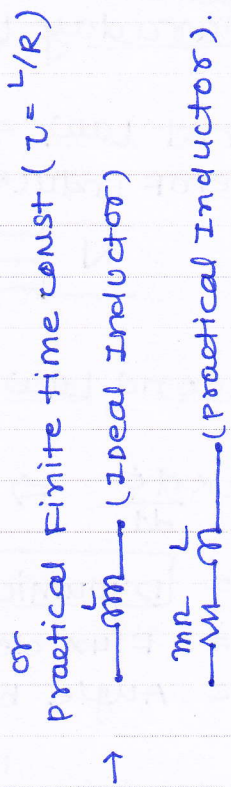 or
practical Finite time const (τ = L/R)
→ L (IDeal Inductor)
mΩ L (practical Inductor).